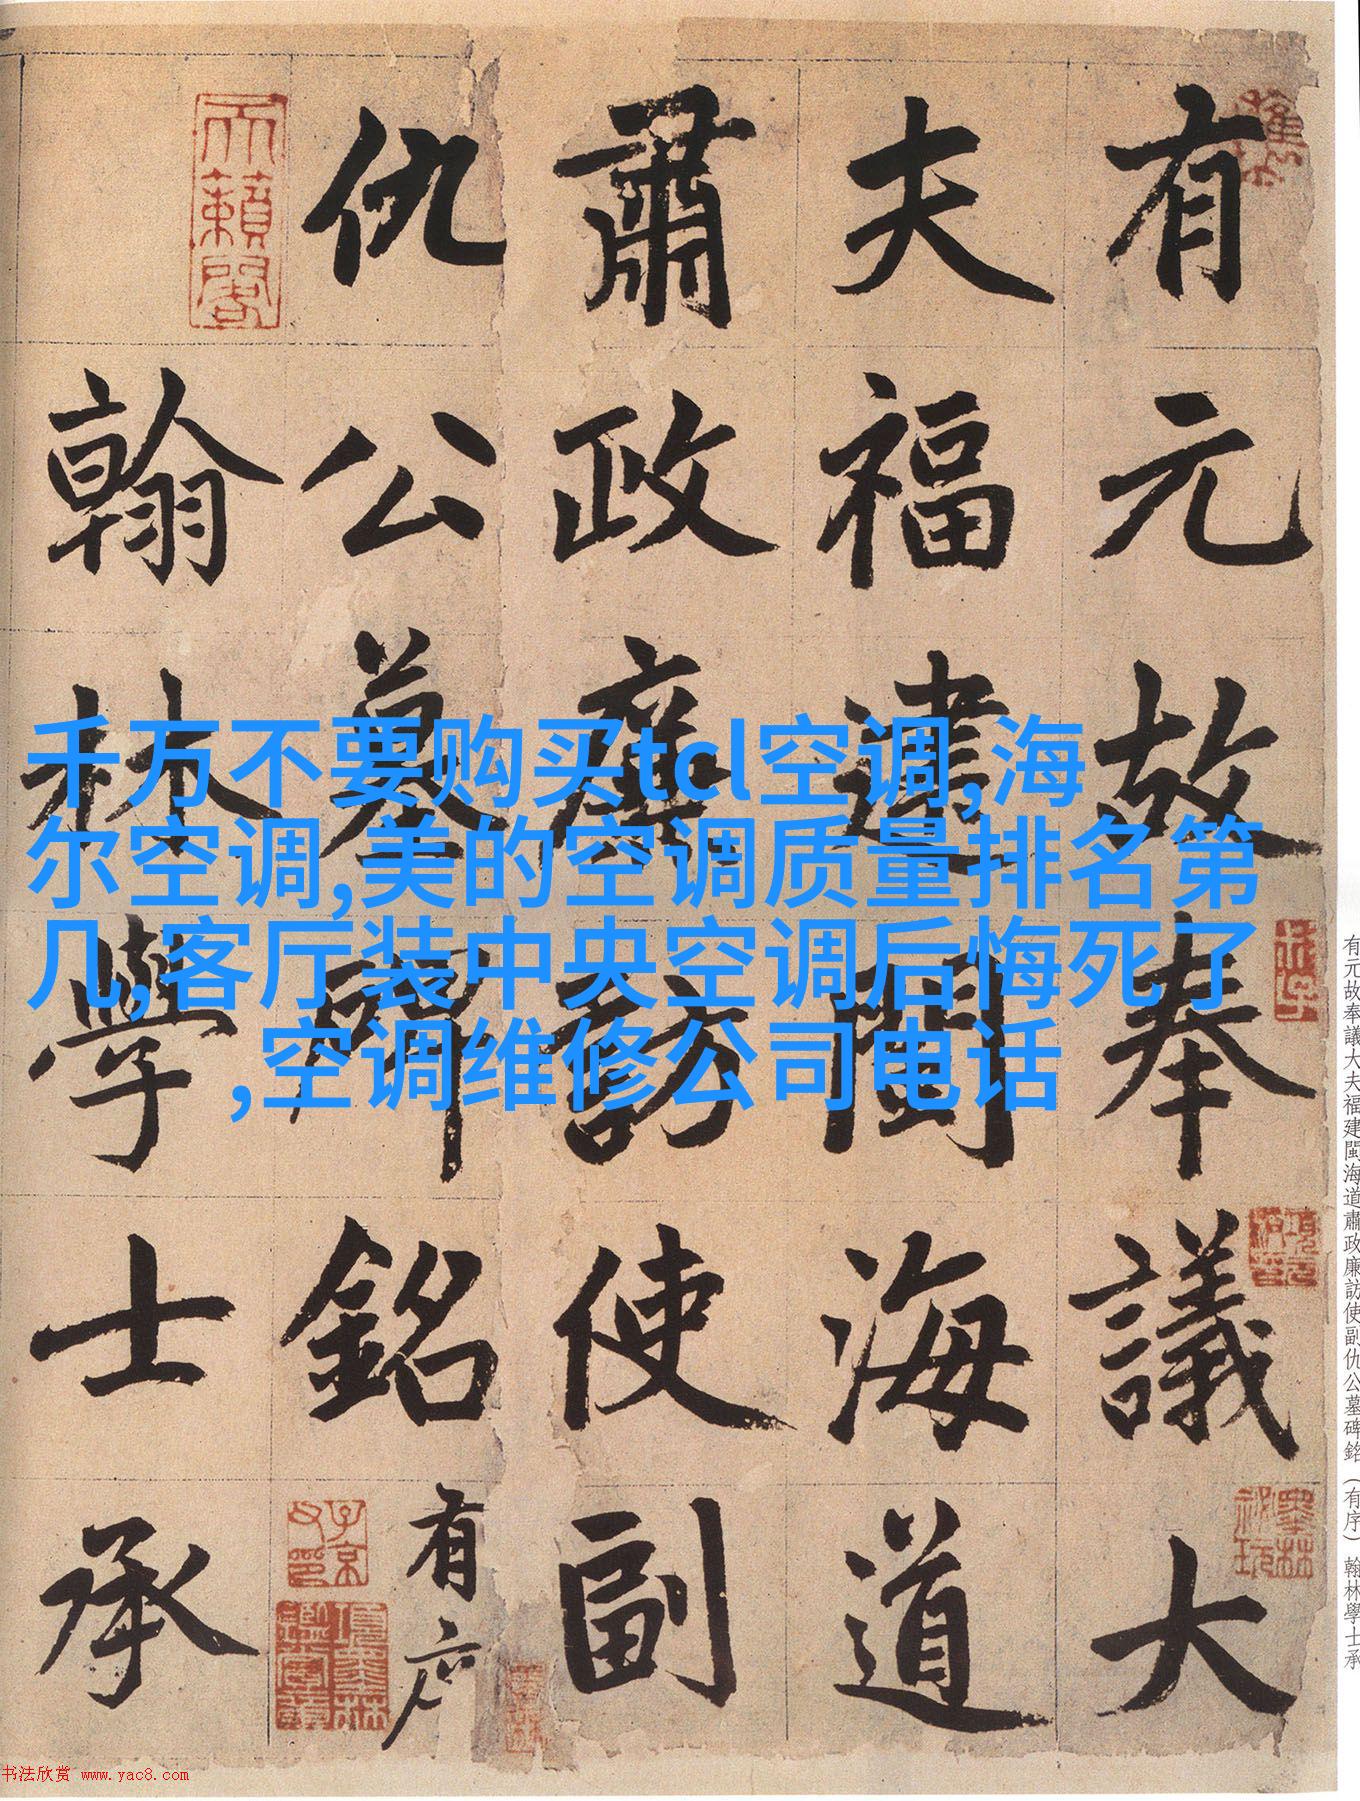 有元故奉議大
夫福建閩海道
肅政廉訪使副
仇公墓碑銘有序
翰林學士承
天籟閣
子京父印
千万不要购买tcl空调,海
尔空调,美的空调质量排名第
几,客厅装中央空调后悔死了
,空调维修公司电话
有元故奉議大夫福建閩海道肅政廉訪使副仇公墓碑銘（有序）翰林學士承
书法欣赏 www.yac8.com